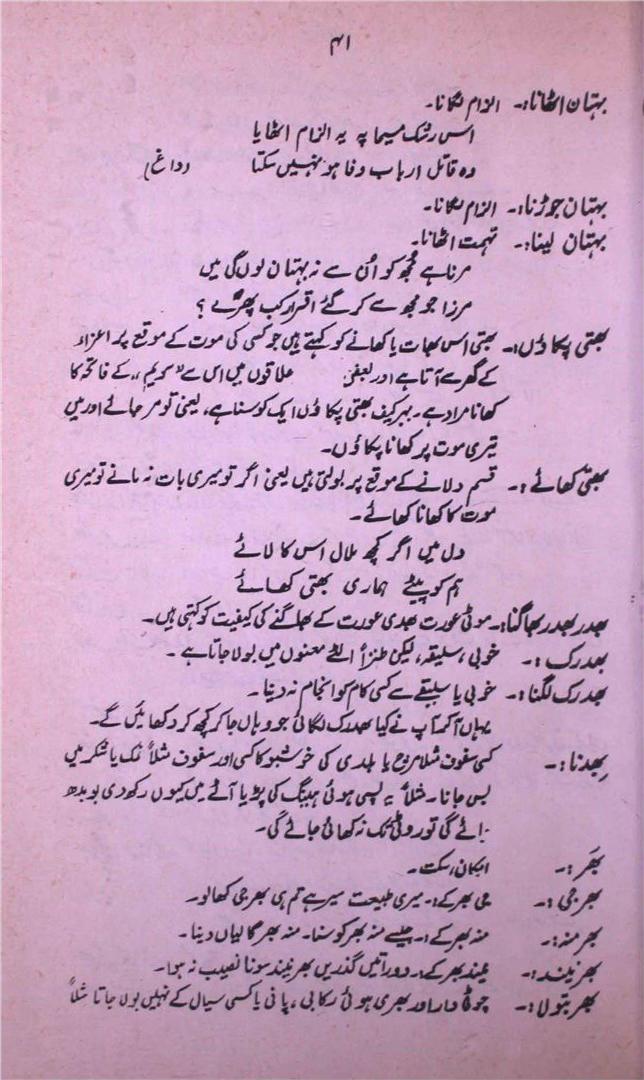 ۴۱
بہتان اٹھانا:۔ الزام لگانا۔
اس رشک مسیحا پہ یہ الزام اٹھایا
وہ قاتل ارباب وفا ہو نہیں سکتا (داغ)
بہتان جوڑنا:۔ الزام لگانا۔
بہتان لینا:۔ تہمت اٹھانا۔
مرنا ہے مجھ کو اُن سے نہ بہتان لوں گی میں
مرزا جو مجھ سے کر گئے اقرار کب پھرے ؟
بھتی پکاؤں:۔ بھتی اس بھات یا کھانے کو کہتے ہیں جو کسی کی موت کے موقع پر اعزاء
کے گھر سے آتا ہے اور بعض علاقوں میں اس سے "سویم" کے فاتحہ کا
کھانا مراد ہے۔ بہر کیف بھتی پکاؤں ایک کوسنا ہے، یعنی تو مر جائے اور میں
تیری موت پر کھانا پکاؤں۔
بھتی کھائے:۔ قسم دلانے کے موقع پر بولتی ہیں یعنی اگر تو میری بات نہ مانے تو میری
موت کا کھانا کھائے۔
دل میں اگر کچھ ملال اس کا لائے
ہم کو پیٹے ہماری بھتی کھائے
بھدر بھدر بھاگنا:۔ موٹی عورت بھدی عورت کے بھاگنے کی کیفیت کو کہتی ہیں۔
بھدرک:۔ خوبی، سلیقہ، لیکن طنزاً الٹے معنوں میں بولا جاتا ہے ۔
بھدرک لگنا:۔ خوبی یا سلیقے سے کسی کام کو انجام نہ دینا ۔
یہاں آکر آپ نے کیا بھدرک لگائی جو وہاں جا کر کچھ کر دکھائیں گے۔
بِھدنا:۔ کسی سفوف مثلا مرچ یا ہلدی کی خوشبو کا کسی اور سفوف مثلاً نمک یا شکر میں
بس جانا۔ مثلاً یہ پسی ہوئی ہینگ کی پڑیا آٹے میں کیوں رکھ دی بو بدھ
جائے گی تو روٹی تک نہ کھائی جائے گی۔
بھَر:۔ امکان، سکت۔
بھر جی:۔ جی بھر کے:۔ میری طبیعت سیر ہے تم ہی بھر جی کھالو۔
بھر منہ:۔ منہ بھر کے:۔ جیسے منہ بھر کوسنا۔ منہ بھر گالیاں دینا۔
بھر نیند:۔ نیند بھر کے:۔ دو راتیں گذریں بھر نیند سونا نصیب نہ ہوا۔
بھر بتولا:۔ چوٹی دار اور بھری ہوئی رکابی، پانی یا کسی سیال کے نہیں بولا جاتا مثلاً